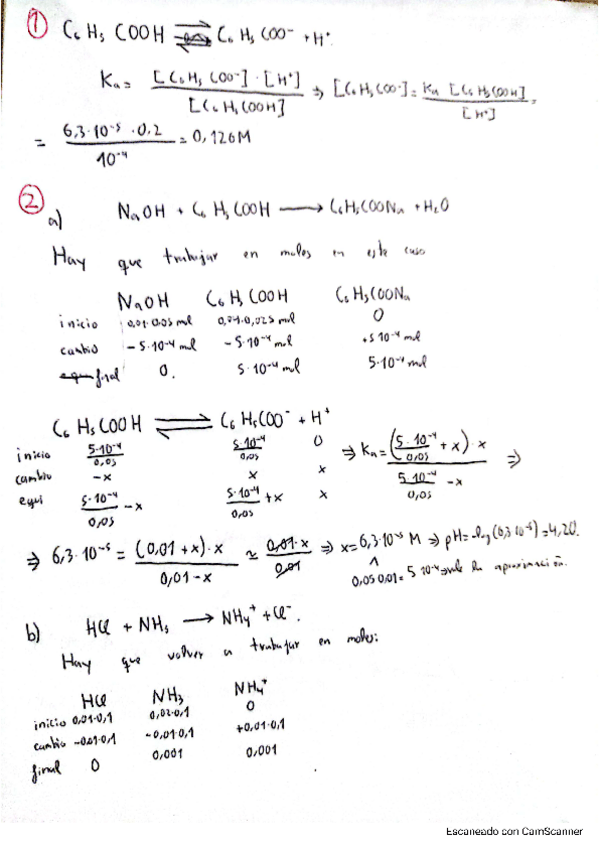 ① C₆H₅COOH ⇌ C₆H₅COO⁻ + H⁺
Ka = [C₆H₅COO⁻]·[H⁺] / [C₆H₅COOH] ⇒ [C₆H₅COO⁻] = Ka [C₆H₅COOH] / [H⁺] =
= 6,3·10⁻⁵ · 0.2 / 10⁻⁴ = 0,126M
②
a) NaOH + C₆H₅COOH → C₆H₅COONa + H₂O
Hay que trabajar en moles en este caso
NaOH C₆H₅COOH C₆H₅COONa
inicio 0,01·0.05 mol 0,025 mol 0
cambio -5·10⁻⁴ mol -5·10⁻⁴ mol +5·10⁻⁴ mol
final 0. 5·10⁻⁴ mol 5·10⁻⁴ mol
C₆H₅COOH ⇌ C₆H₅COO⁻ + H⁺
inicio 5·10⁻⁴/0,05 5·10⁻⁴/0,05 0 ⇒ Ka = (5·10⁻⁴/0,05 + x)·x / (5·10⁻⁴/0,05 - x) ⇒
cambio -x x x
equi 5·10⁻⁴/0,05 - x 5·10⁻⁴/0,05 + x x
⇒ 6,3·10⁻⁵ = (0,01 + x)·x / 0,01 - x ≃ 0,01·x / 0,01 ⇒ x = 6,3·10⁻⁵ M ⇒ pH = -log(6,3·10⁻⁵) = 4,20.
0,05·0,01 = 5·10⁻⁴ vale la aproximación.
b) HCl + NH₃ → NH₄⁺ + Cl⁻.
Hay que volver a trabajar en moles:
HCl NH₃ NH₄⁺
inicio 0,01·0,1 0,02·0,1 0
cambio -0,01·0,1 -0,01·0,1 +0,01·0,1
final 0 0,001 0,001
Escaneado con CamScanner